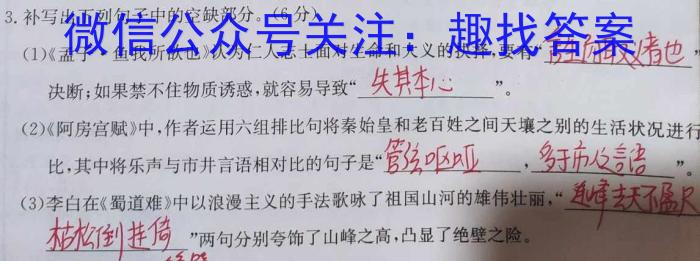 3.补写出下列句子中的空缺部分。(6分)
微信公众号关注：趣找答案
(1)《孟子·鱼我所欲也》认为仁人志士面对生命和大义的抉择,要有“舍生而取义者也”
决断;如果禁不住物质诱惑,就容易导致“失其本心”。
(2)《阿房宫赋》中,作者运用六组排比句将秦始皇和老百姓之间天壤之别的生活状况进行
比,其中将乐声与市井言语相对比的句子是“管弦呕哑,多于市人之言语”。
(3)李白在《蜀道难》中以浪漫主义的手法歌咏了祖国山河的雄伟壮丽,“连峰去天不盈尺
枯松倒挂倚”两句分别夸饰了山峰之高,凸显了绝壁之险。